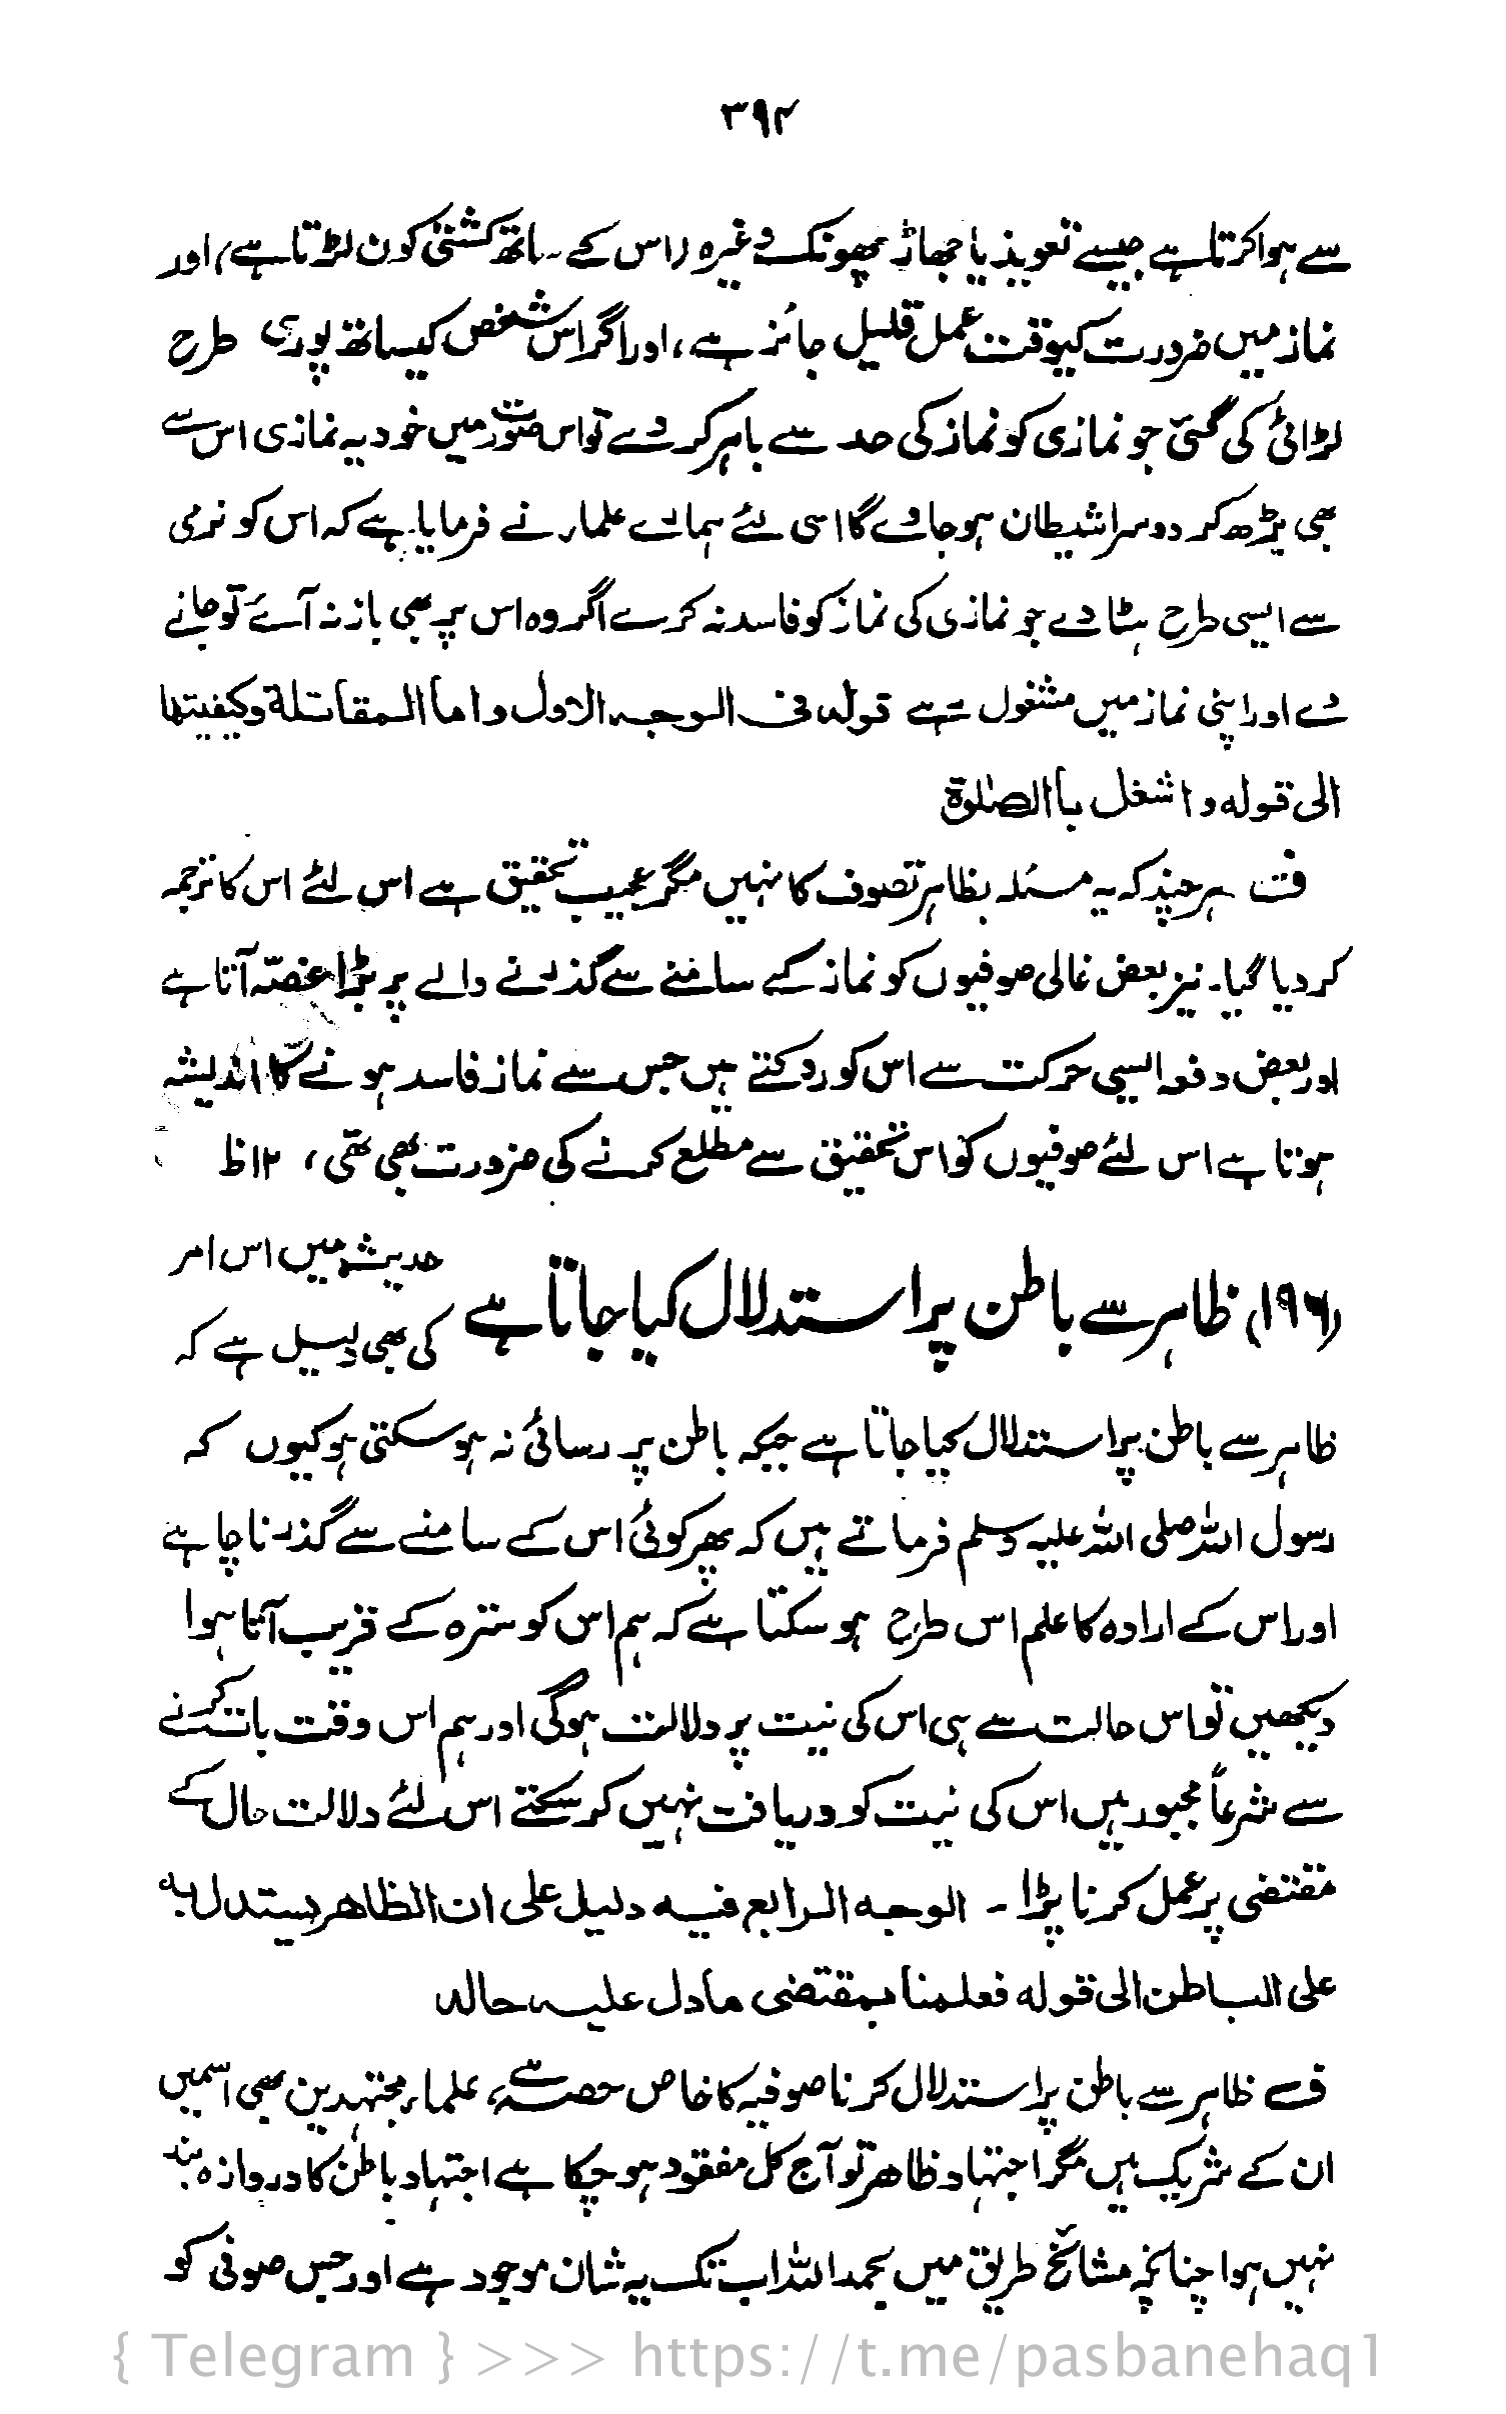 ۳۹۴
سے ہوا کرتا ہے جیسے تعویذ یا جھاڑ پھونک وغیرہ (اس کے ساتھ کشتی کون لڑتا ہے) اور
نماز میں ضرورت کیوقت عمل قلیل جائز ہے، اور اگر اس شخص کیساتھ پوری طرح
لڑائی کی گئی جو نمازی کو نماز کی حد سے باہر کر دے تو اس صورت میں خود یہ نمازی اس سے
بھی بڑھ کر دوسرا شیطان ہو جاوے گا اسی لئے ہمارے علماء نے فرمایا ہے کہ اس کو نرمی
سے ایسی طرح ہٹا دے جو نمازی کی نماز کو فاسد نہ کرے اگر وہ اس پر بھی باز نہ آئے تو جانے
دے اور اپنی نماز میں مشغول رہے قولہ فی الوجہ الاول واما المقاتلة وکیفیتها
الی قوله واشغل باالصلوٰة
ف ہر چند کہ یہ مسئلہ بظاہر تصوف کا نہیں مگر عجیب تحقیق ہے اس لئے اس کا ترجمہ
کر دیا گیا۔ نیز بعض غالی صوفیوں کو نماز کے سامنے سے گذرنے والے پر بڑا غصّہ آتا ہے
اور بعض دفعہ ایسی حرکت سے اس کو روکتے ہیں جس سے نماز فاسد ہونے کا اندیشہ
ہوتا ہے اس لئے صوفیوں کو اس تحقیق سے مطلع کرنے کی ضرورت بھی تھی، ۱۲ظ
(۱۹۶) ظاہر سے باطن پر استدلال کیا جاتا ہے حدیث میں اس امر
کی بھی دلیل ہے کہ
ظاہر سے باطن پر استدلال کیا جاتا ہے جبکہ باطن پر رسائی نہ ہو سکتی ہو کیوں کہ
رسول اللہ صلی اللہ علیہ وسلم فرماتے ہیں کہ پھر کوئی اس کے سامنے سے گذرنا چاہے
اور اس کے ارادہ کا علم اس طرح ہو سکتا ہے کہ ہم اس کو سترہ کے قریب آتا ہوا
دیکھیں تو اس حالت سے ہی اس کی نیت پر دلالت ہوگی اور ہم اس وقت بات کرنے
سے شرعاً مجبور ہیں اس کی نیت کو دریافت نہیں کر سکتے اس لئے دلالت حال کے
مقتضی پر عمل کرنا پڑا ۔ الوجه الرابع فیه دلیل علی ان الظاهر یستدل به
علی الباطن الی قوله فعلمنا بمقتضی مادل علیه حاله
ف ظاہر سے باطن پر استدلال کرنا صوفیہ کا خاص حصہ ہے، علماء مجتہدین بھی اسمیں
ان کے شریک ہیں مگر اجتہاد ظاہر تو آج کل مفقود ہو چکا ہے اجتہاد باطن کا دروازہ بند
نہیں ہوا چنانچہ مشائخ طریق میں بحمد اللہ اب تک یہ شان موجود ہے اور جس صوفی کو
{ Telegram } >>> https://t.me/pasbanehaq1